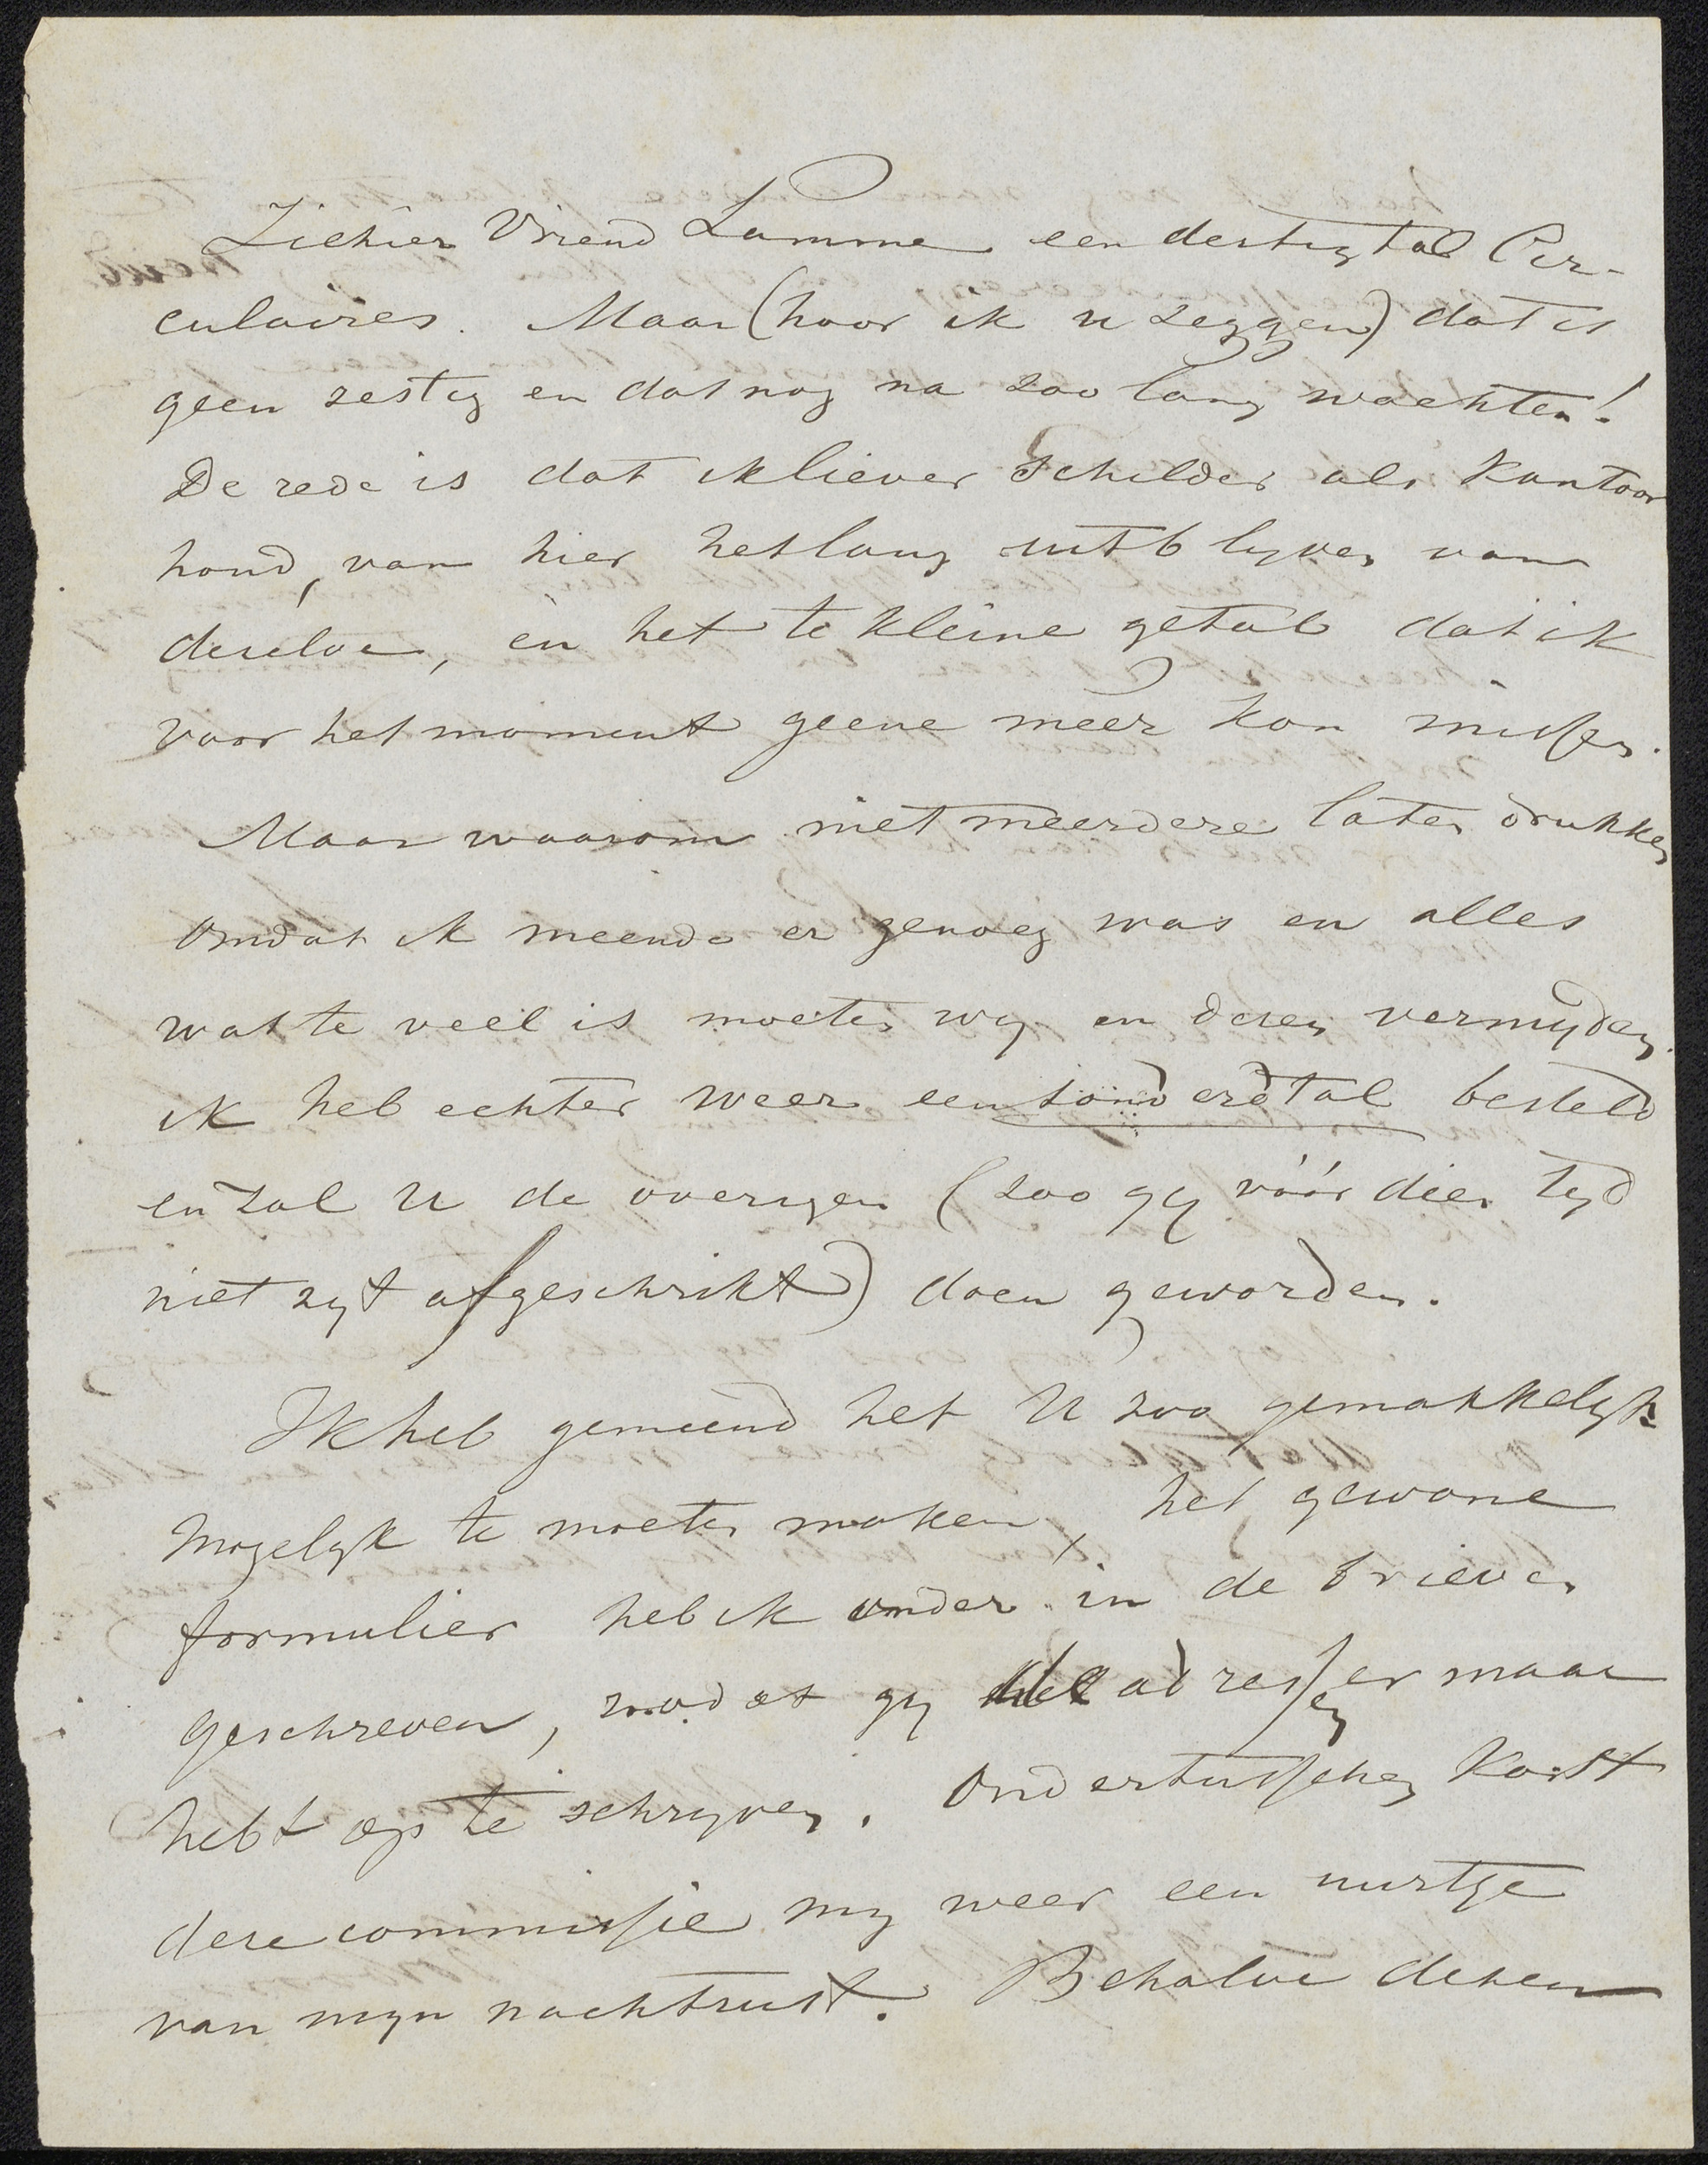 Ziehier Vriend Lamme een dertigtal Cir-
culaires. Maar (hoor ik u zeggen) dat is
geen zestig en dat nog na zoo lang wachten!
De rede is dat ik liever schilder als Kantoor
houd, van hier het lang uitblyven van
dezelve, en het te kleine getal dat ik
voor het moment geene meer kon missen.
Maar waarom niet meerdere laten drukken
omdat ik meende er genoeg was en alles
wat te veel is moeten wy en deren vermyden.
ik heb echter weer een honderdtal besteld
en zal U de overigen (zoo gy vóór dien tyd
niet zyt afgeschrikt) doen geworden.
Ik heb gemeend het U zoo gemakkelyk
mogelyk te moeten maken, het gewone
formulier heb ik onder in de brieven
geschreven, zoodat gy de adressen er maar
hebt op te schryven. Ondertusschen kost
deze commissie my weer een uurtje
van myn nachtrust. Behalve dezen